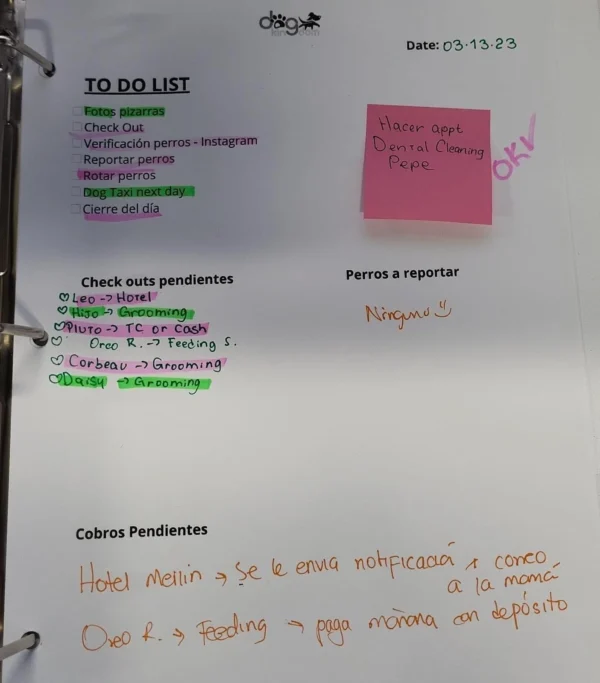 dog
Date: 03.13.23
TO DO LIST
Fotos pizarras
Check Out
Verificación perros - Instagram
Reportar perros
Rotar perros
Dog Taxi next day
Cierre del día
Hacer appt
Dental Cleaning
Pepe
OK✓
Check outs pendientes
Leo -> Hotel
Hijo -> Grooming
Pluto -> TC or Cash
Oreo R. -> Feeding S.
Corbeau -> Grooming
Daisy -> Grooming
Perros a reportar
Ninguno
Cobros Pendientes
Hotel Meilin -> Se le envia notificación x correo
a la mamá
Oreo R. -> Feeding -> paga mañana con depósito